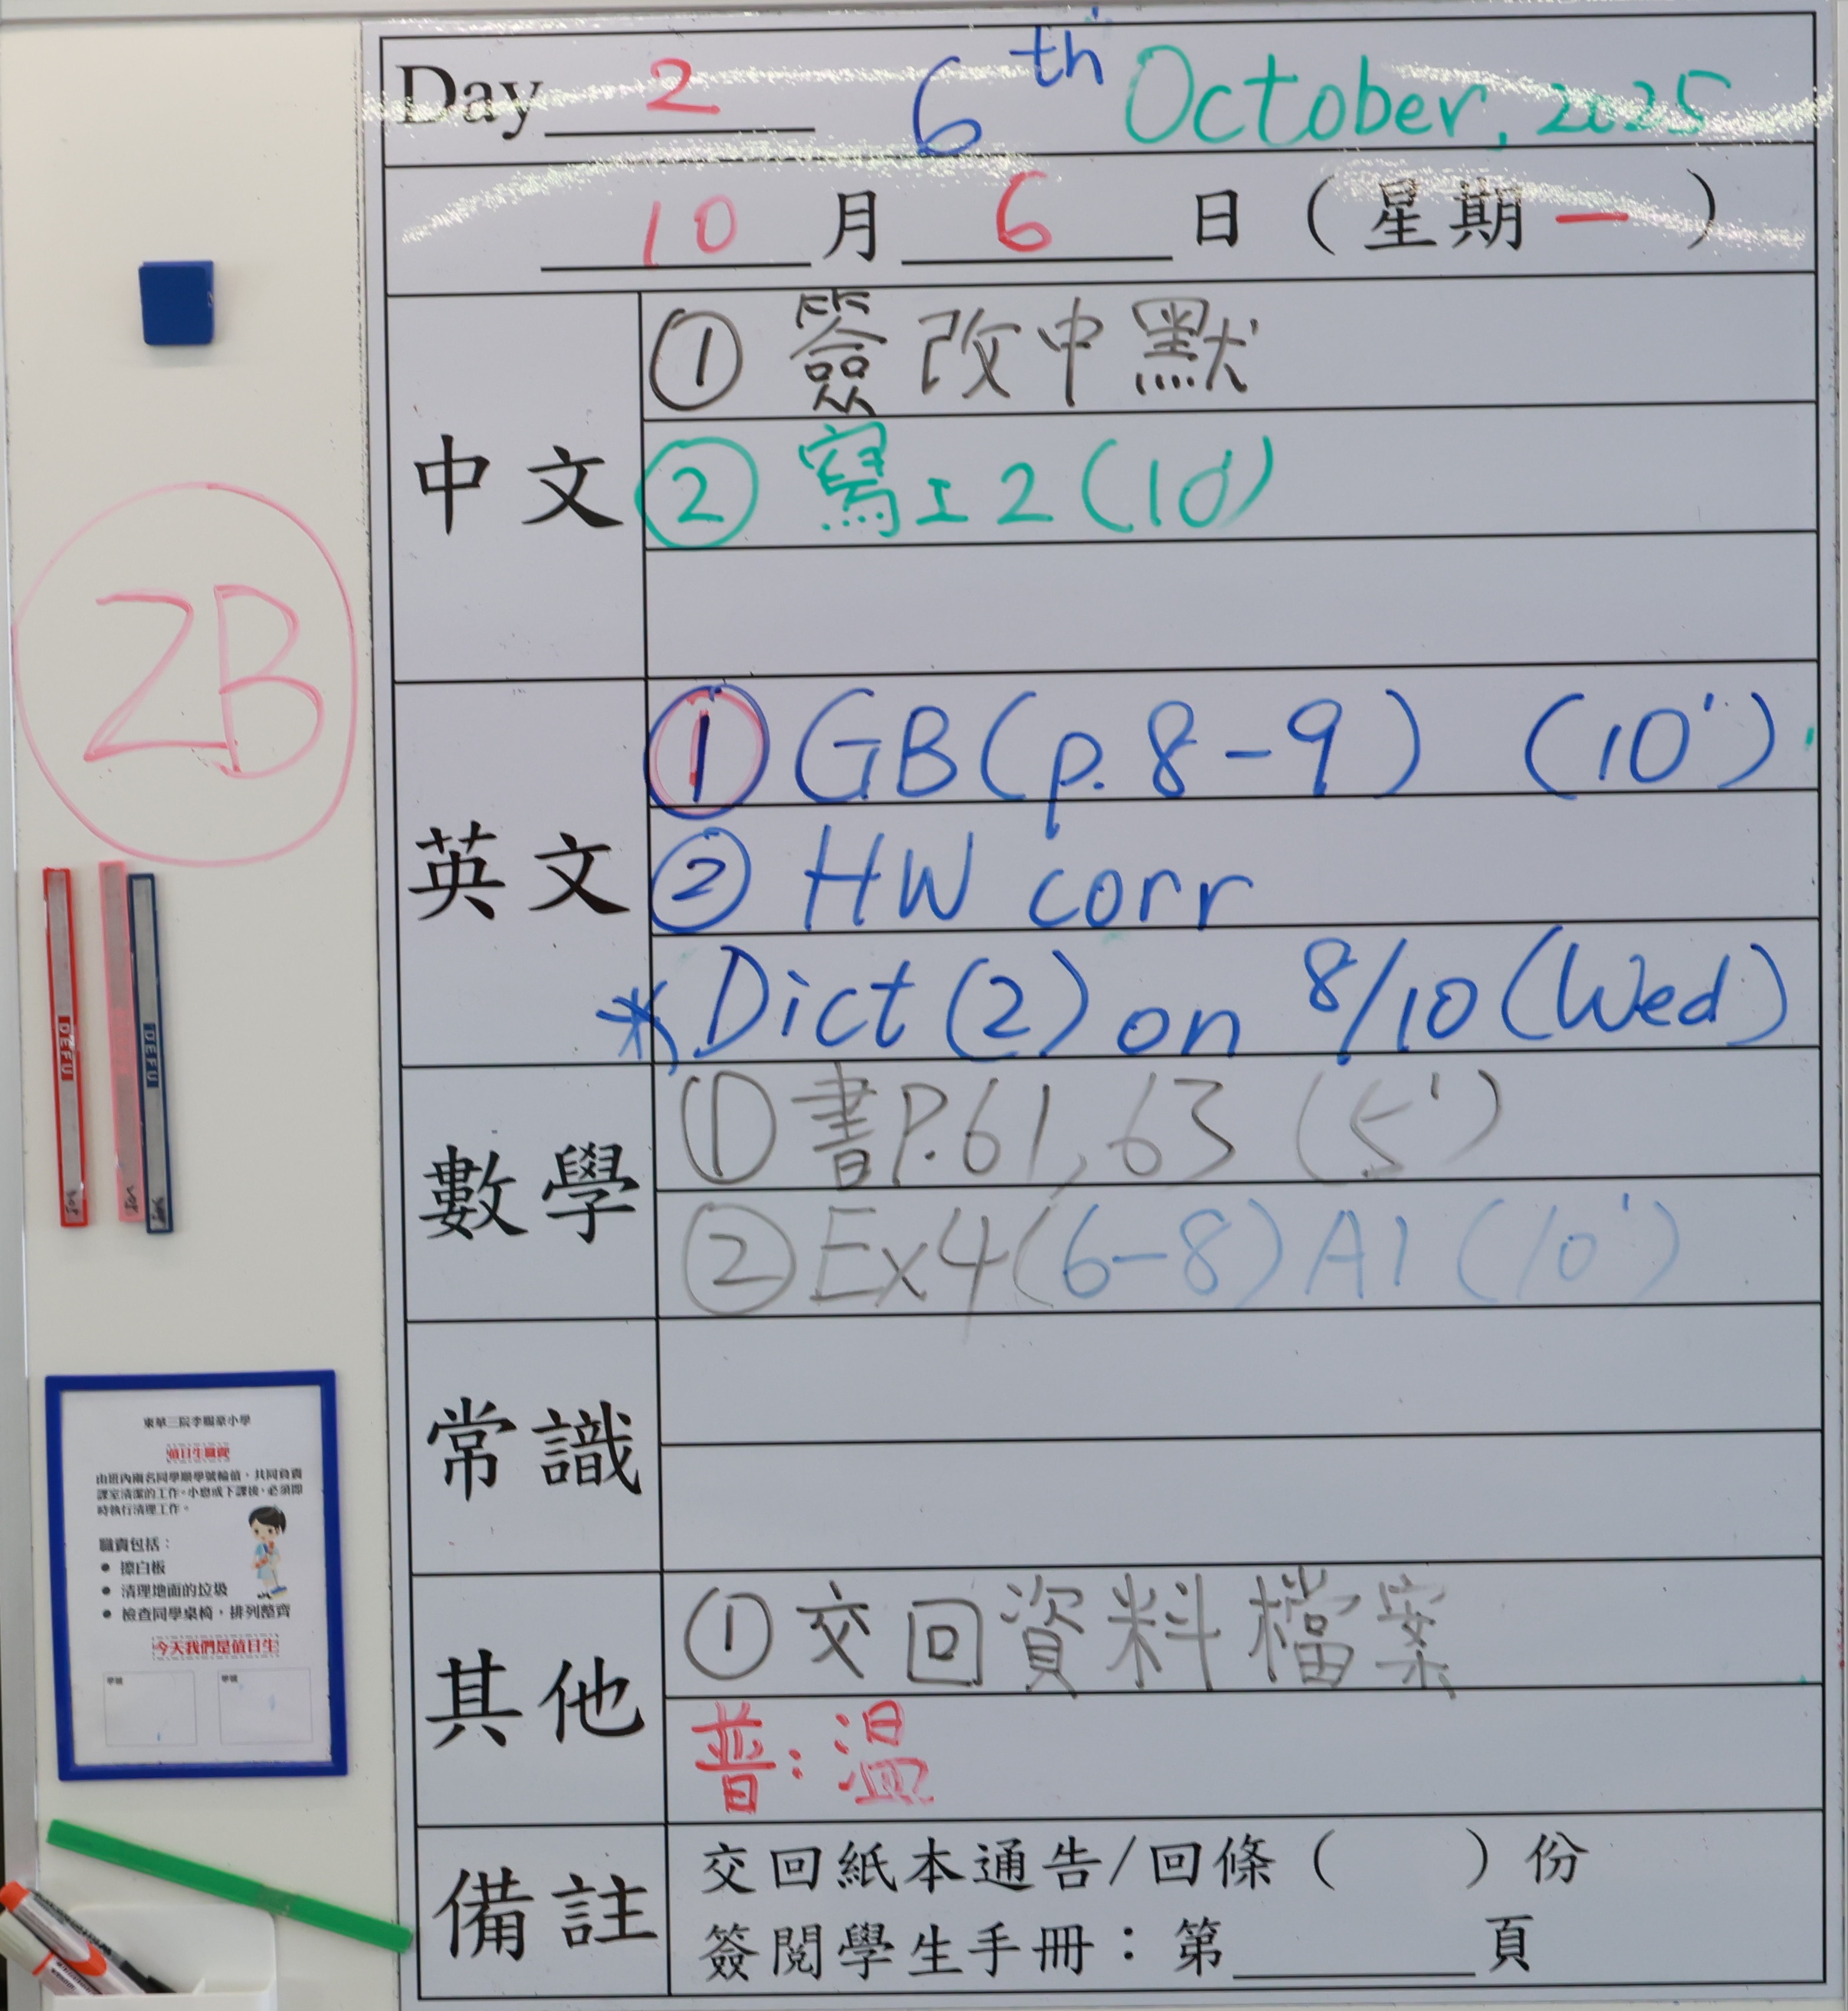 Day 2 6th October, 2025
10 月 6 日 (星期一)
中文
① 簽改中默
② 寫工2(10')
英文
① GB(p.8-9) (10')
② HW corr
* Dict(2) on 8/10(Wed)
數學
① 書P.61,63 (5')
② Ex4(6-8)A1(10')
常識
其他
① 交回資料檔案
普:溫
備註
交回紙本通告/回條( )份
簽閱學生手冊:第______頁
2B
DEFU
DEFU
東華三院李賜豪小學
值日生職責
由班內兩名同學順學號輪值,共同負責
課室清潔的工作。小息或下課後,必須即
時執行清理工作。
職責包括:
● 擦白板
● 清理地面的垃圾
● 檢查同學桌椅,排列整齊
今天我們是值日生
學號 學號